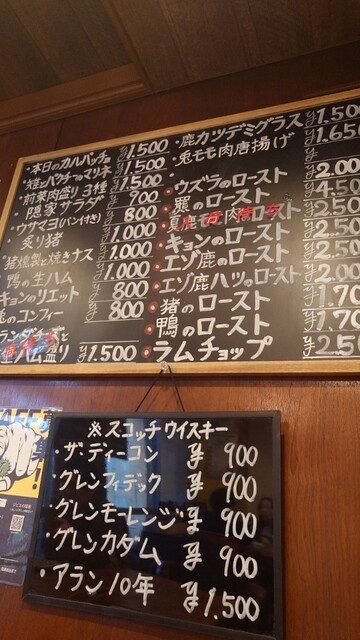 ・本日のカルパッチョ ¥1,500
・雉とパクチーのマリネ ¥1,500
前菜肉盛り3種 1,500
隠家サラダ 900
ウサマヨ(パン付き) 800
炙り猪 ¥1,000
猪燻製と焼きナス ¥1,000
鴨の生ハム 1,000
キョンのリエット 800
兎のコンフィー 800
生ハム盛り ¥1.500
・鹿カツデミグラス ¥1,500
・兎モモ肉唐揚げ 1,65
ウズラのロースト 2.00
羆のロースト 4,50
夏鹿モモ肉ロースト 2.50
キョンのロースト 2.50
エゾ鹿のロースト 2.50
エゾ鹿ハツのロースト 2.00
猪のロースト 1,70
鴨のロースト ¥1,70
ラムチョップ ¥2.50
※スコッチウイスキー
・ザディーコン ¥900
・グレンフィデック ¥900
・グレンモーレンジ ¥900
・グレンカダム ¥900
・アラン10年 ¥1,500